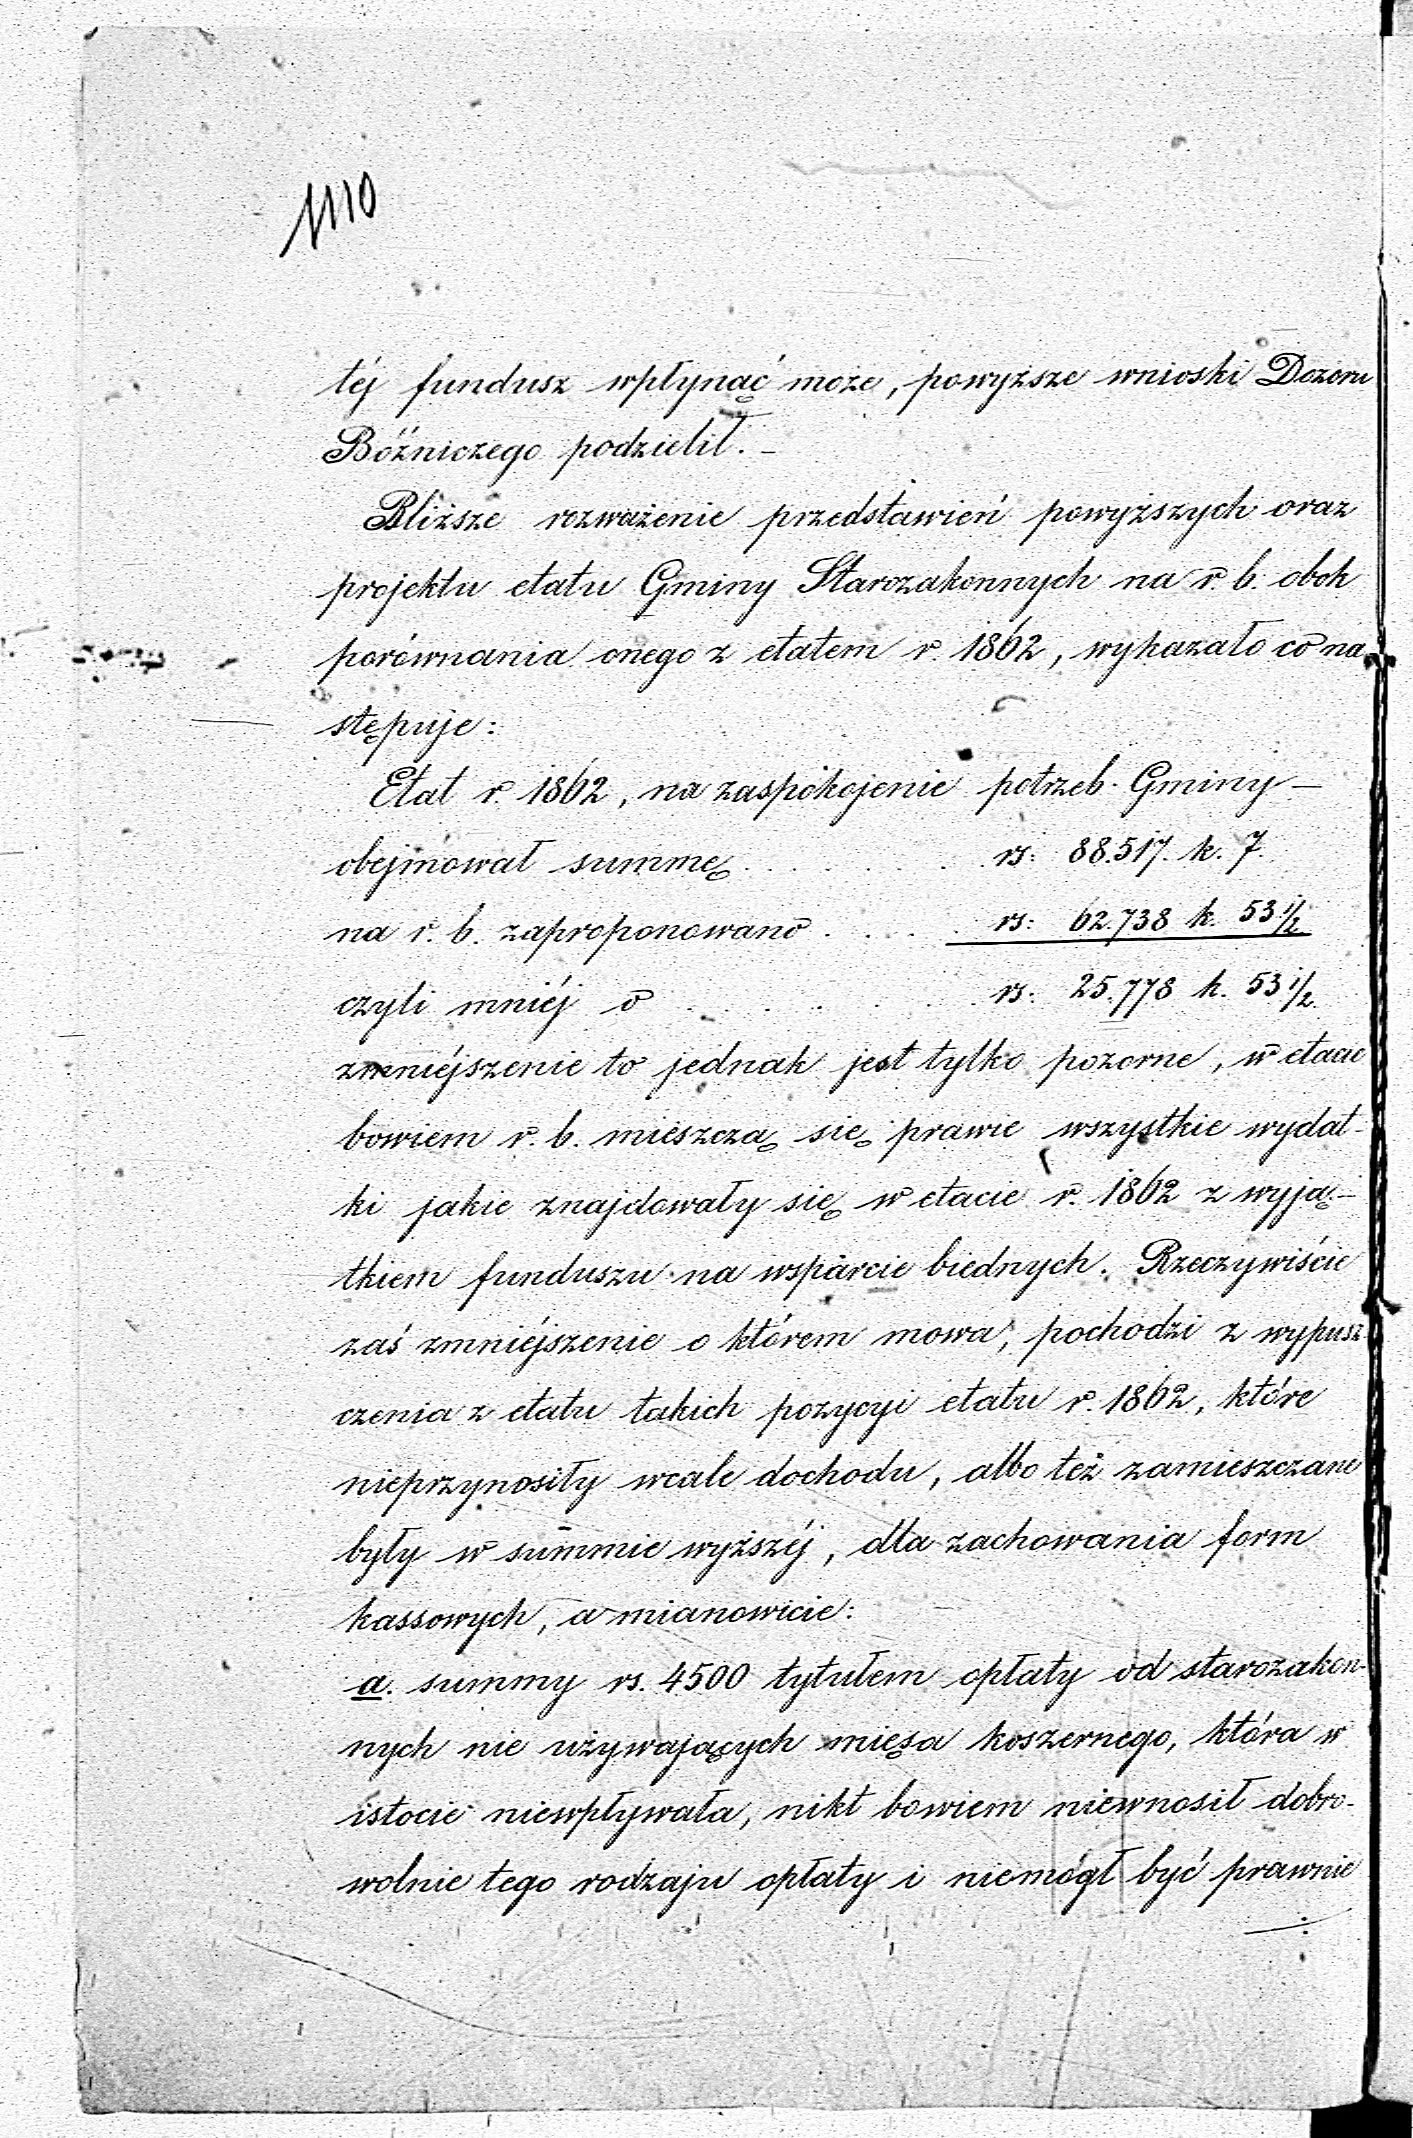 1110
téj fundusz wpłynąć może, powyższe wnioski Dozoru
Bóżniczego podzielił. –
Bliższe rozważenie przedstawień powyższych oraz
projektu etatu Gminy Starozakonnych na r. b. obok
porównania onego z etatem r. 1862, wykazało co na
stępuje:
Etat r. 1862, na zaspokojenie potrzeb Gminy –
obejmował summę . . . . . . rs: 88.517. k. 7.
na r. b. zaproponowano . . . . rs: 62.738 k. 53 1/2
czyli mniéj o . . . . . . rs: 25.778 k. 53 1/2.
zmniéjszenie to jednak jest tylko pozorne, w etacie
bowiem r. b. mieszczą się prawie wszystkie wydat-
ki jakie znajdowały się w etacie r. 1862 z wyją-
tkiem funduszu na wsparcie biednych. Rzeczywiście
zaś zmniéjszenie o którem mowa, pochodzi z wypusz
czenia z etatu takich pozycyi etatu r. 1862, które
nieprzynosiły wcale dochodu, albo też zamieszczane
były w summie wyższéj, dla zachowania form
kassowych, a mianowicie:
a. summy rs. 4500 tytułem opłaty od starozakon-
nych nie używających mięsa koszernego, która w
istocie niewpływała, nikt bowiem niewnosił dobro-
wolnie tego rodzaju opłaty i niemógł być prawnie